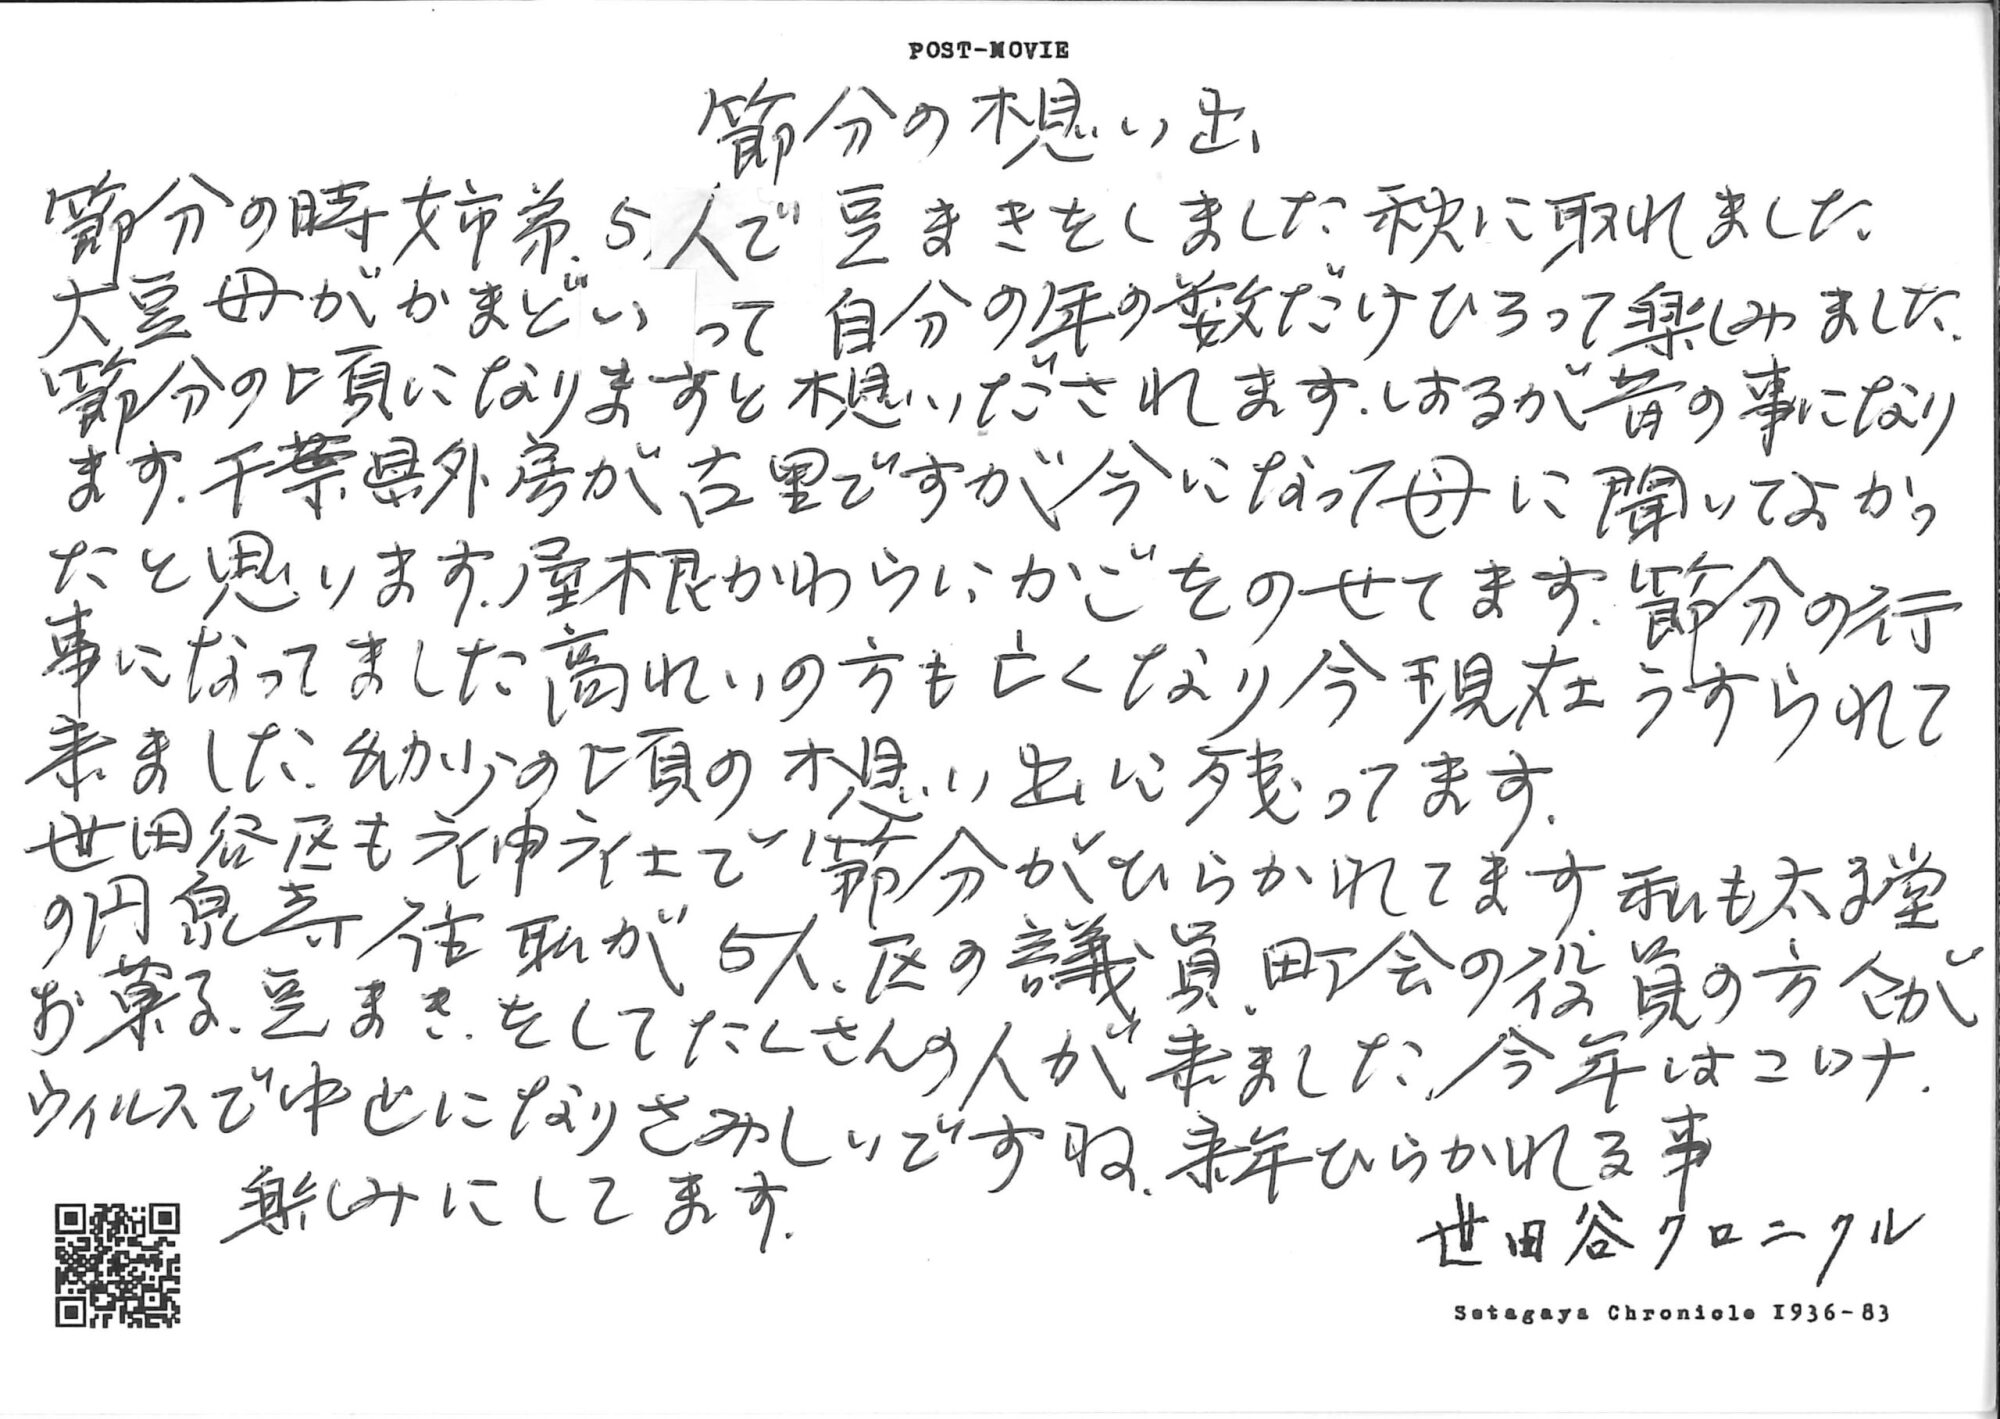 POST-MOVIE
節分の想い出
節分の時姉弟.5人で豆まきをしました秋に取れました
大豆母がかまどいって自分の年の数だけひろって楽しみました.
節分の頃になりますと想いだされます.はるが昔の事になり
ます.千葉県外房が古里ですが今になって母に聞いてよかっ
たと思います.屋根かわらにかごをのせてます.節分の行
事になってました高れいの方も亡くなり今現在うすられて
来ました.幼少の頃の想い出に残ってます.
世田谷区も神社で節分がひらかれてます.私も太子堂
の円泉寺住職が5人.区の議員.町会の役員の方々が
お菓子.豆まき.をしてたくさんの人が来ました.今年はコロナ.
ウィルスで中止になりさみしいですね.来年ひらかれる事
楽しみにしてます.
世田谷クロニクル
Setagaya Chronicle 1936-83